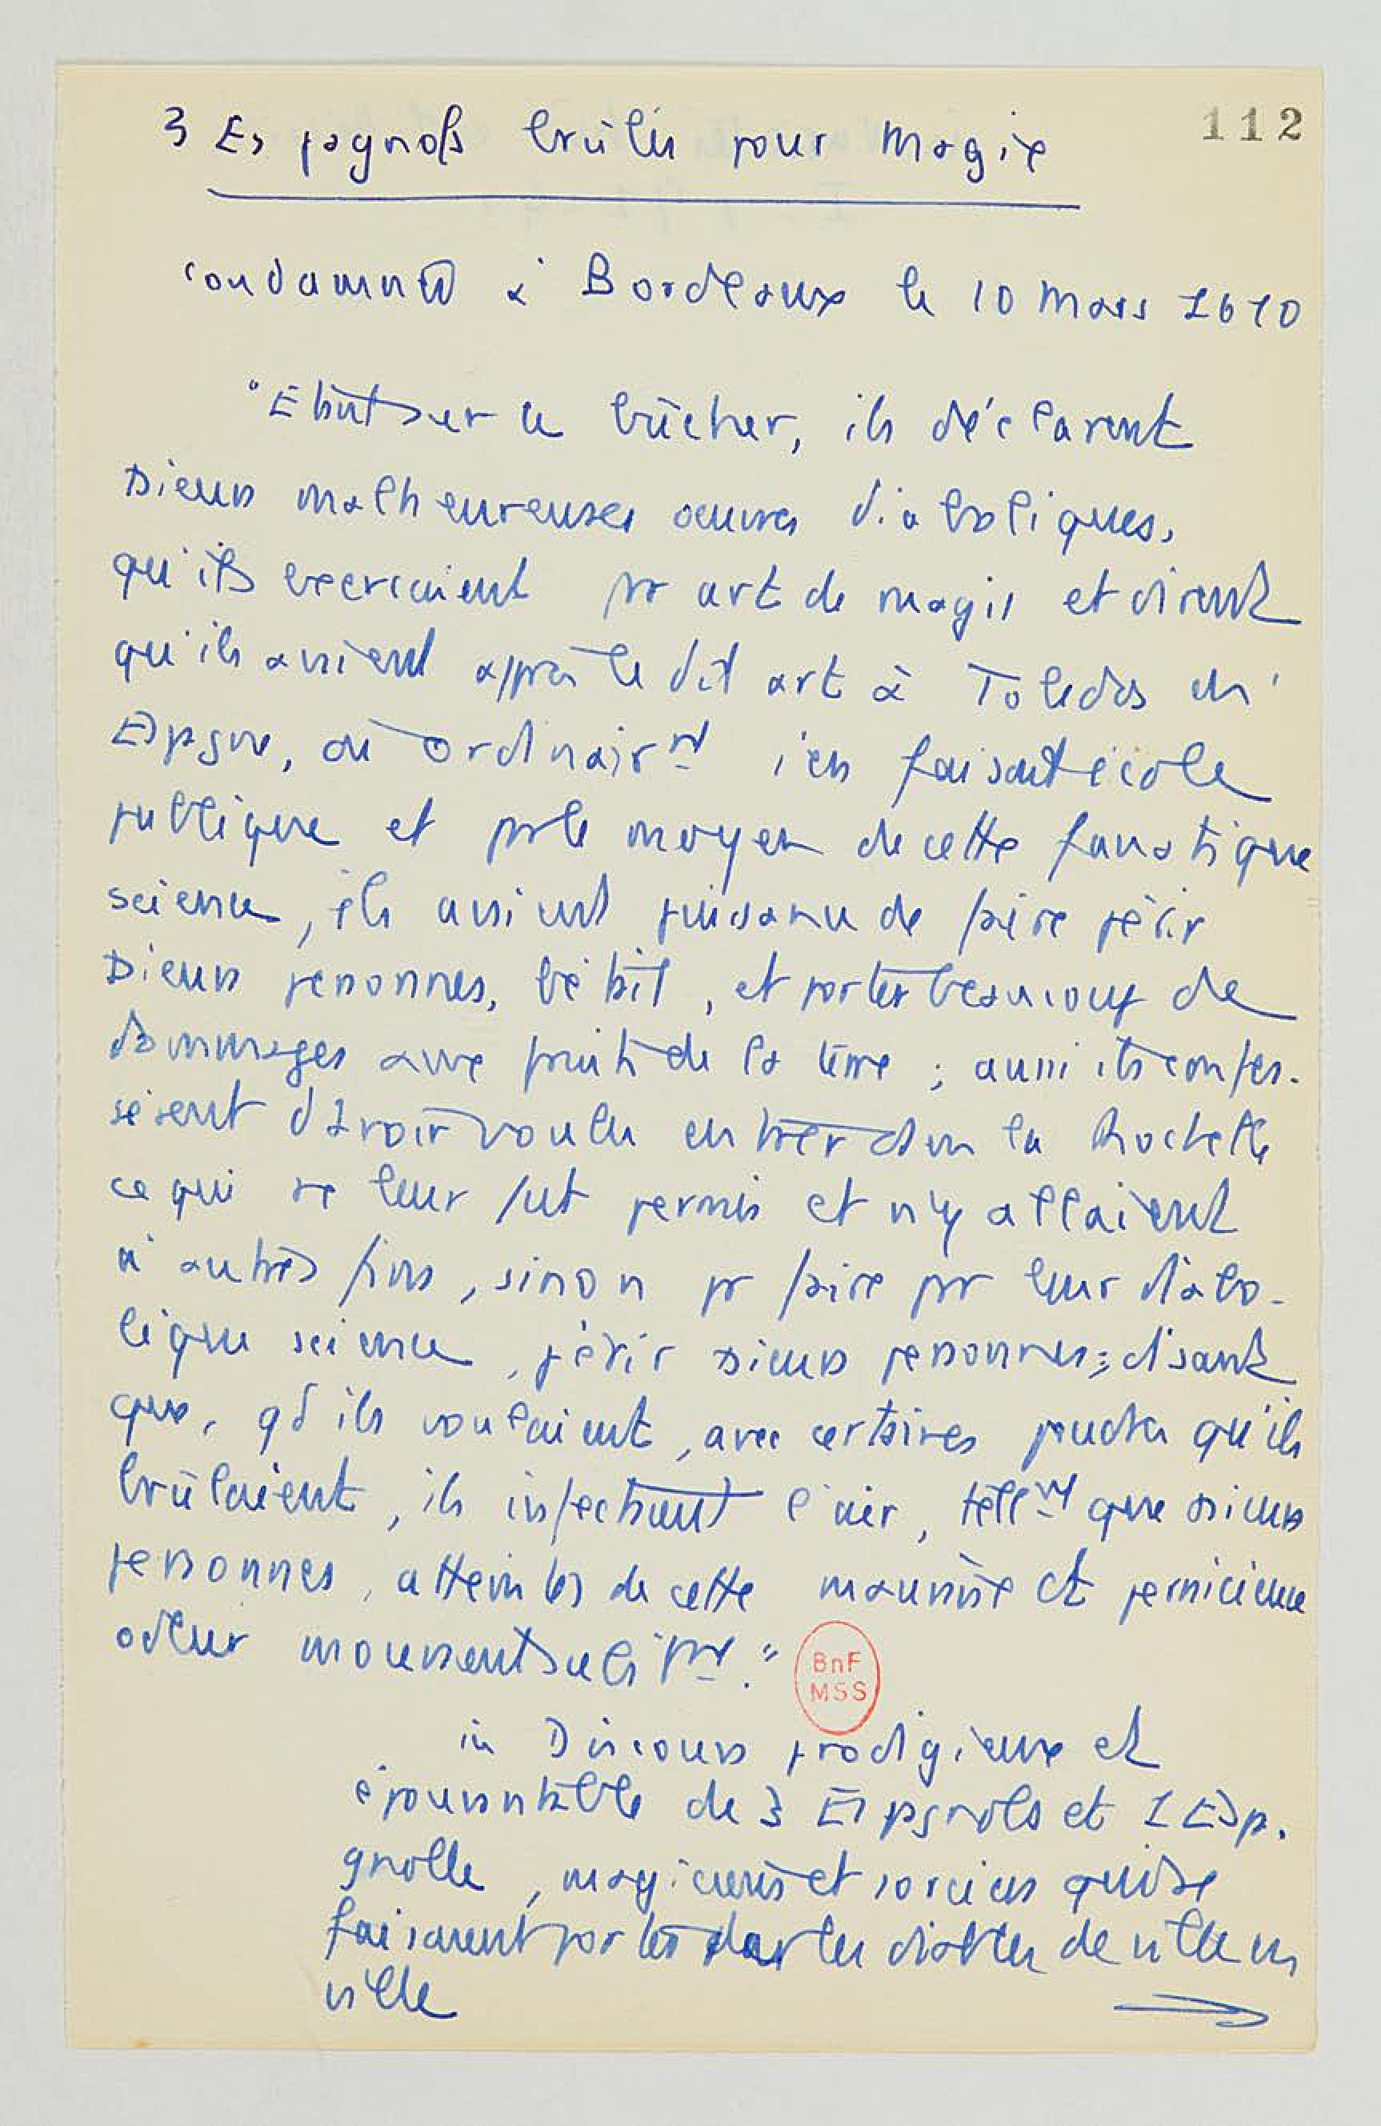 112
3 Espagnols brûlés pour magie
condamnés à Bordeaux le 10 mars 1610
"Etant sur le bûcher, ils déclarent
plsieurs malheureuses oeuvres diaboliques,
qu'ils exerçaient par art de magie et dirent
qu'ils avaient appris le dit art à Toledos en
Espgne, où ordinairmt s'en faisait école
publique et par le moyen de cette fanatique
science, ils avaient puissance de faire périr
personnes, bétail, et porter beaucoup de
dommages aux fruits de la terre ; aussi ils confes-
sèrent d'avoir voulu entrer dans la Rochelle
ce qui ne leur fut permis et n'y allaient
à autres fins, sinon pr faire par leur diabo-
lique science, périr personnes ; disant
que, qd ils voulaient, avec certaines poudres qu'ils
brûlaient, ils infectaient l'air, tellmt que
personnes, atteintes de cette mauvaise et pernicieuse
odeur mouraient subitmt."
BnF
MSS
in Discours prodigieux et
épouvantable de 3 Espgnols et 1 Esp.
gnolle, magiciens et sorciers qui se
faisaient porter par les diables de ville en
ville